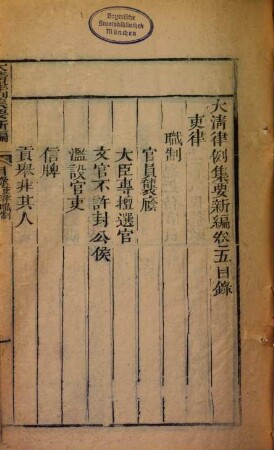 Bayerische
Staatsbibliothek
München
大清律例集要新編卷之五目錄
吏律
職制
官員襲廕
大臣專擅選官
文官不許封公侯
濫設官吏
信牌
貢舉非其人